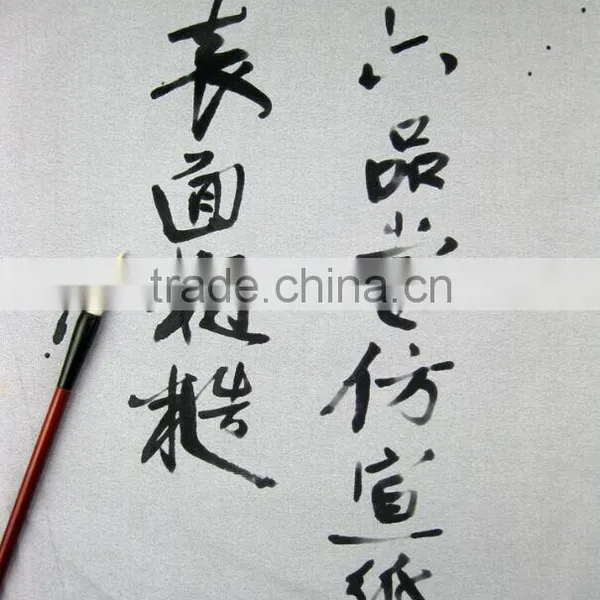 六品堂仿宣纸
表面粗糙
trade.china.cn